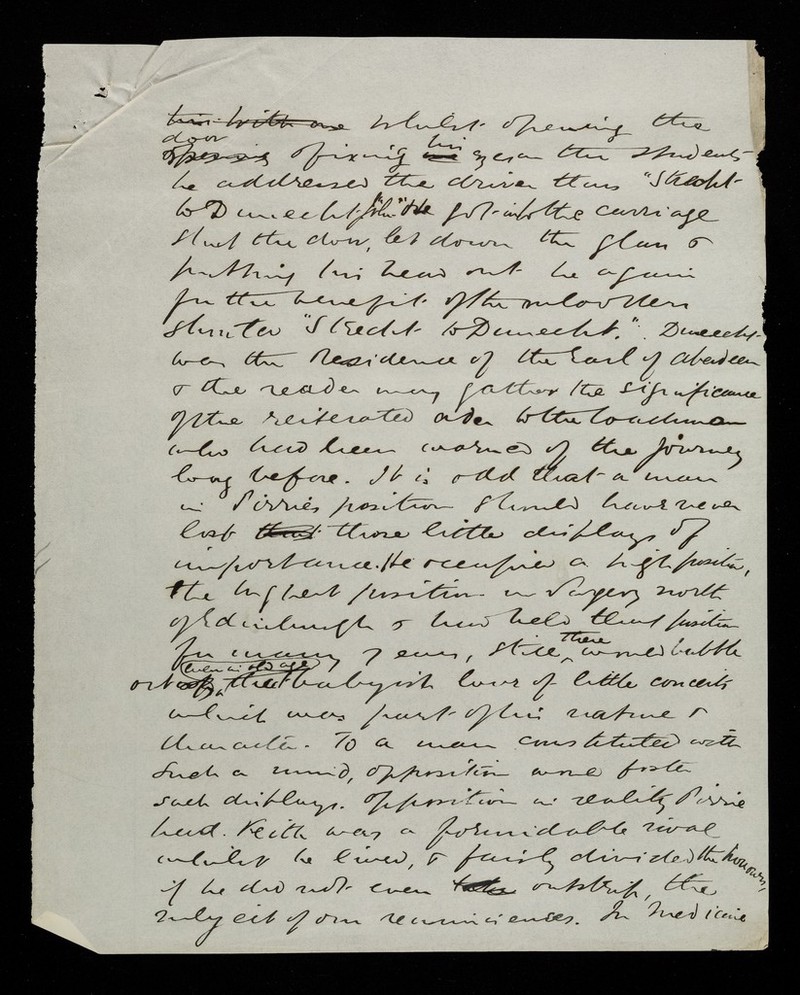 whilst opening the
door
opening of fixing his eyes on the students
he addressed the driver thus "Straight
to Dunecht John" He got into the carriage
shut the door, let down the glass &
putting his head out he again
for the benefit of the onlookers
shouted "Straight to Dunecht." Dunecht
was the residence of the Earl of Aberdeen
& the reader may gather the significance
of the reiterated order to the coachman
who had been warned of the journey
long before. It is odd that a man
in Pirrie's position should have never
lost that those little displays of
importance. He occupied a high position,
the highest position in Surgery north
of Edinburgh & had held that position
for many years, still there would bubble
(even in old age)
out of that babyish love of little conceits
which was part of his nature &
character. To a man constituted with
such a mind, opposition would foster
such displays. Opposition in reality Pirrie
had. Keith was a formidable rival
whilst he lived, & fairly divided the honours,
if he did not even outstrip, the
subject of our reminiscences. In Medicine